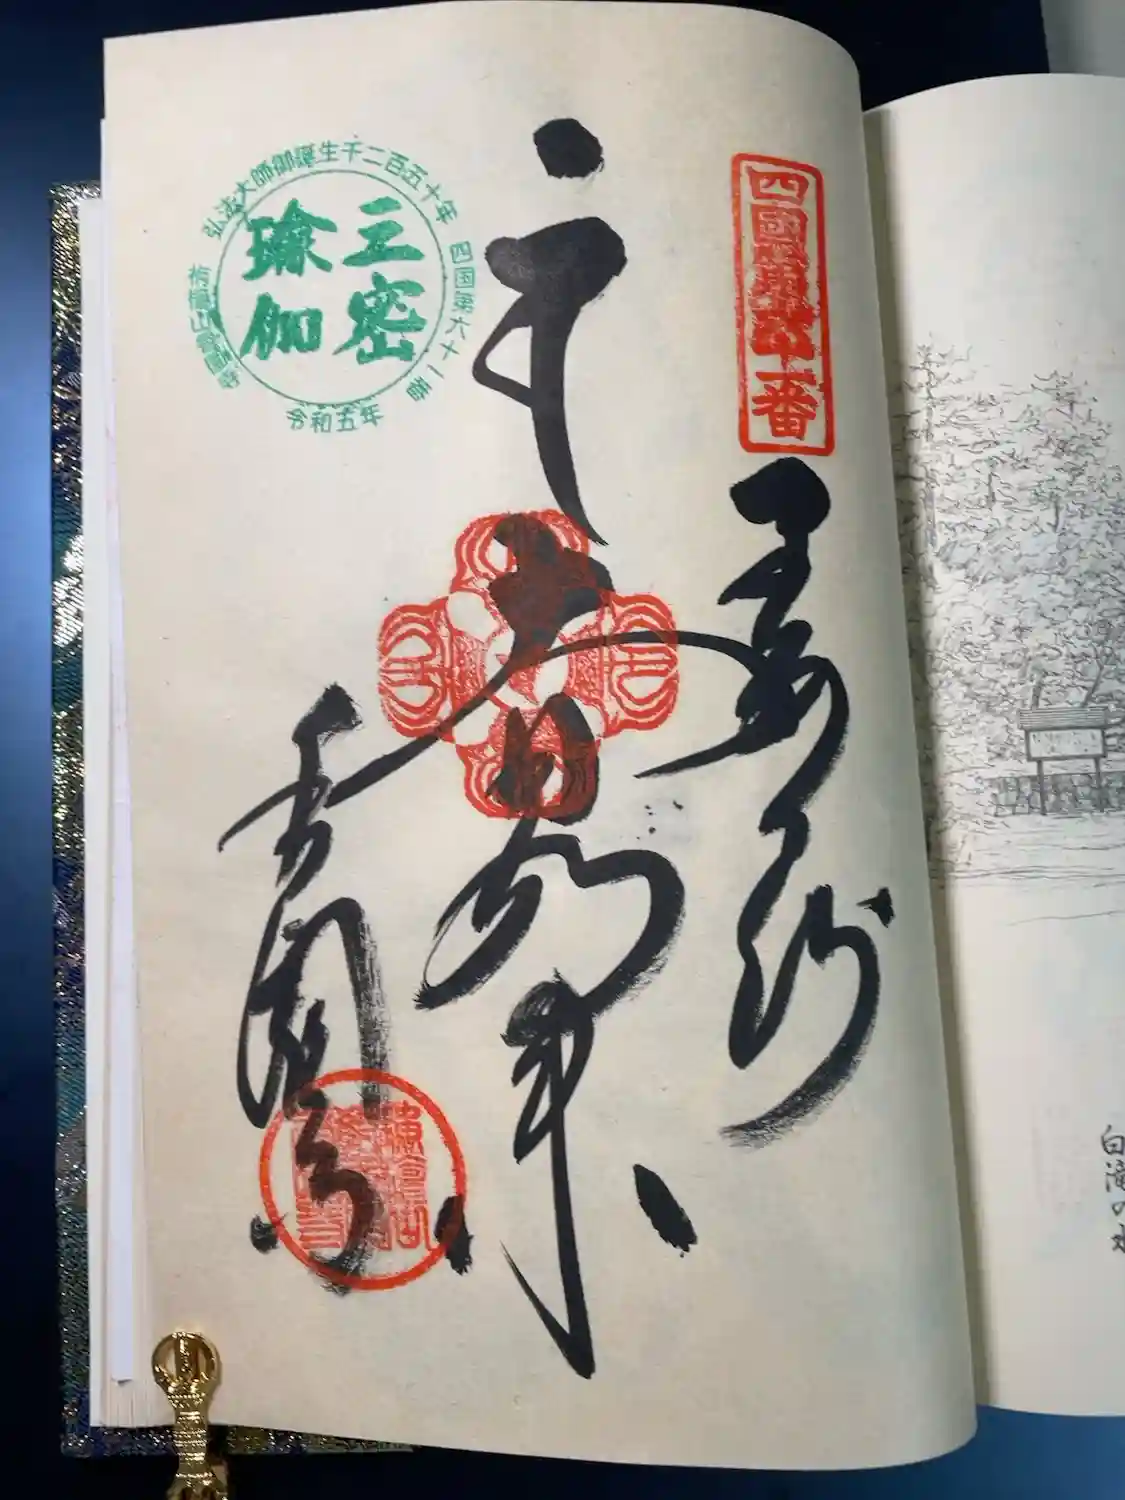 四國第六十一番
奉納
大日如来
香園寺
弘法大師御誕生千二百五十年
四国第六十一番
栴檀山香園寺
令和五年
三密
瑜伽
白滝の